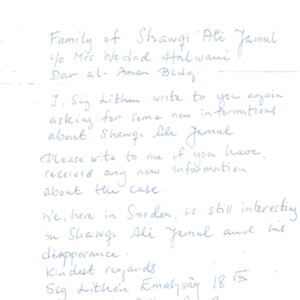 Family of Shawqi Ali Jamul
c/o Mrs Wedad Halwani
Dar al-Aman Bldg.
I, Sig Lithen write to you again
asking for some new informations
about Shawqi Ali Jamul
Please write to me if you have
received any new information
about the case.
We, here in Sweden, is still interesting
in Shawqi Ali Jamul and his
disapperance.
Kindest regards
Sig Lithén 18